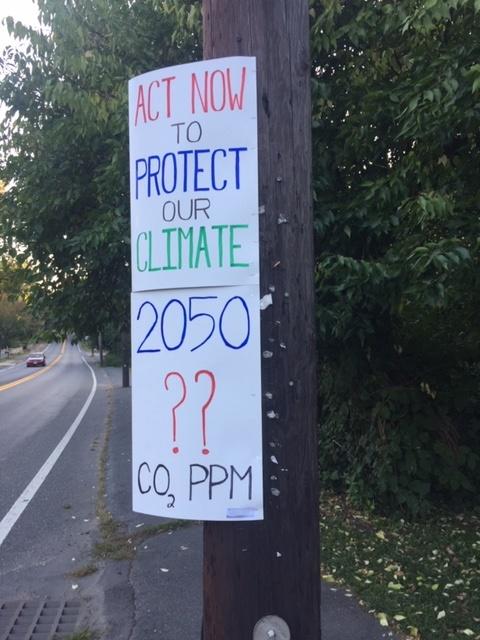 ACT NOW
TO
PROTECT
OUR
CLIMATE
2050
??
CO₂ PPM